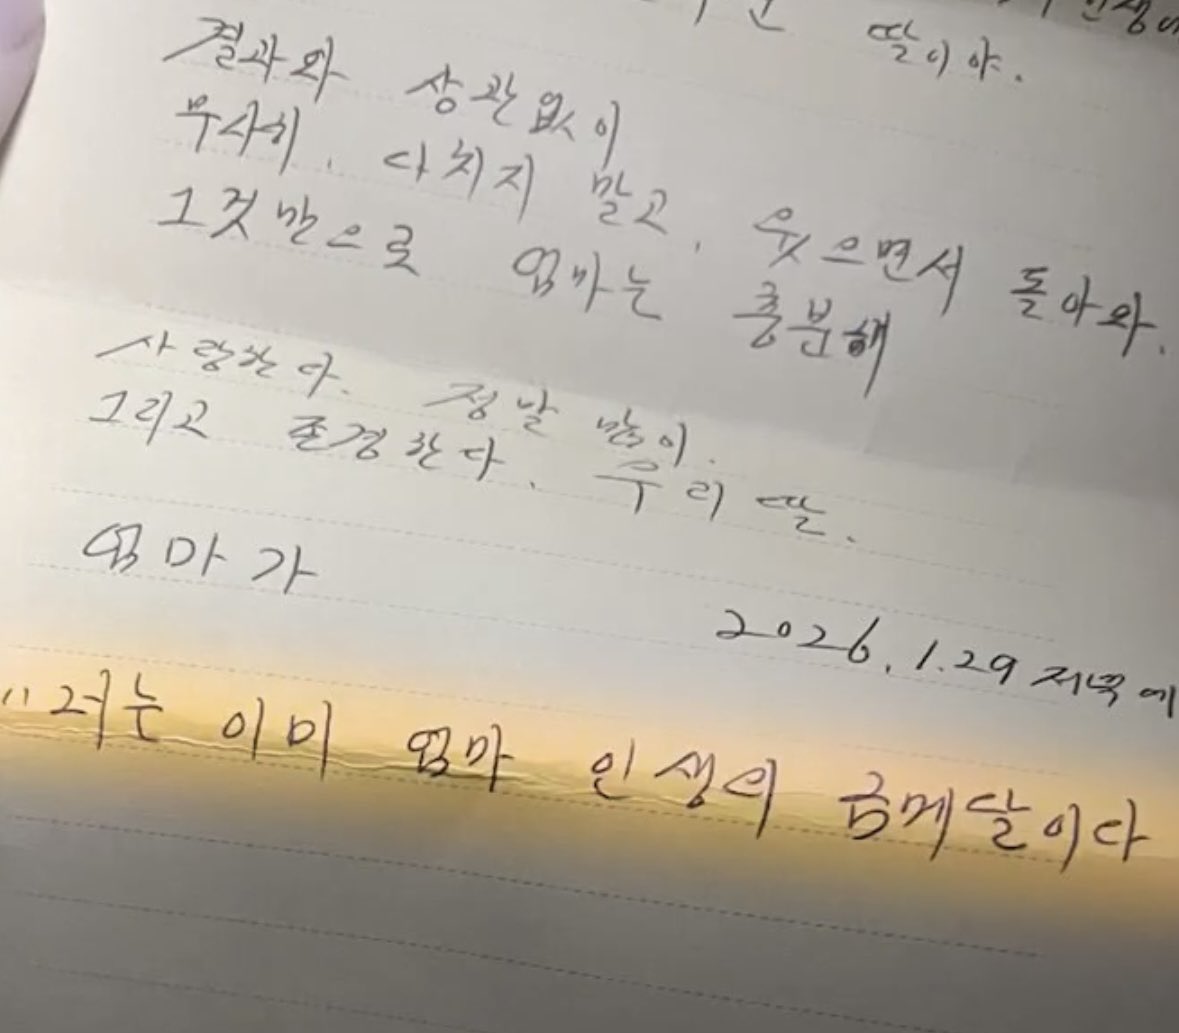 인생에
딸이야.
결과와 상관없이
무사히, 다치지 말고, 웃으면서 돌아와.
그것만으로 엄마는 충분해
사랑한다. 정말 많이.
그리고 존경한다, 우리 딸.
엄마가
2026.1.29 저녁에
"너는 이미 엄마 인생의 금메달이다